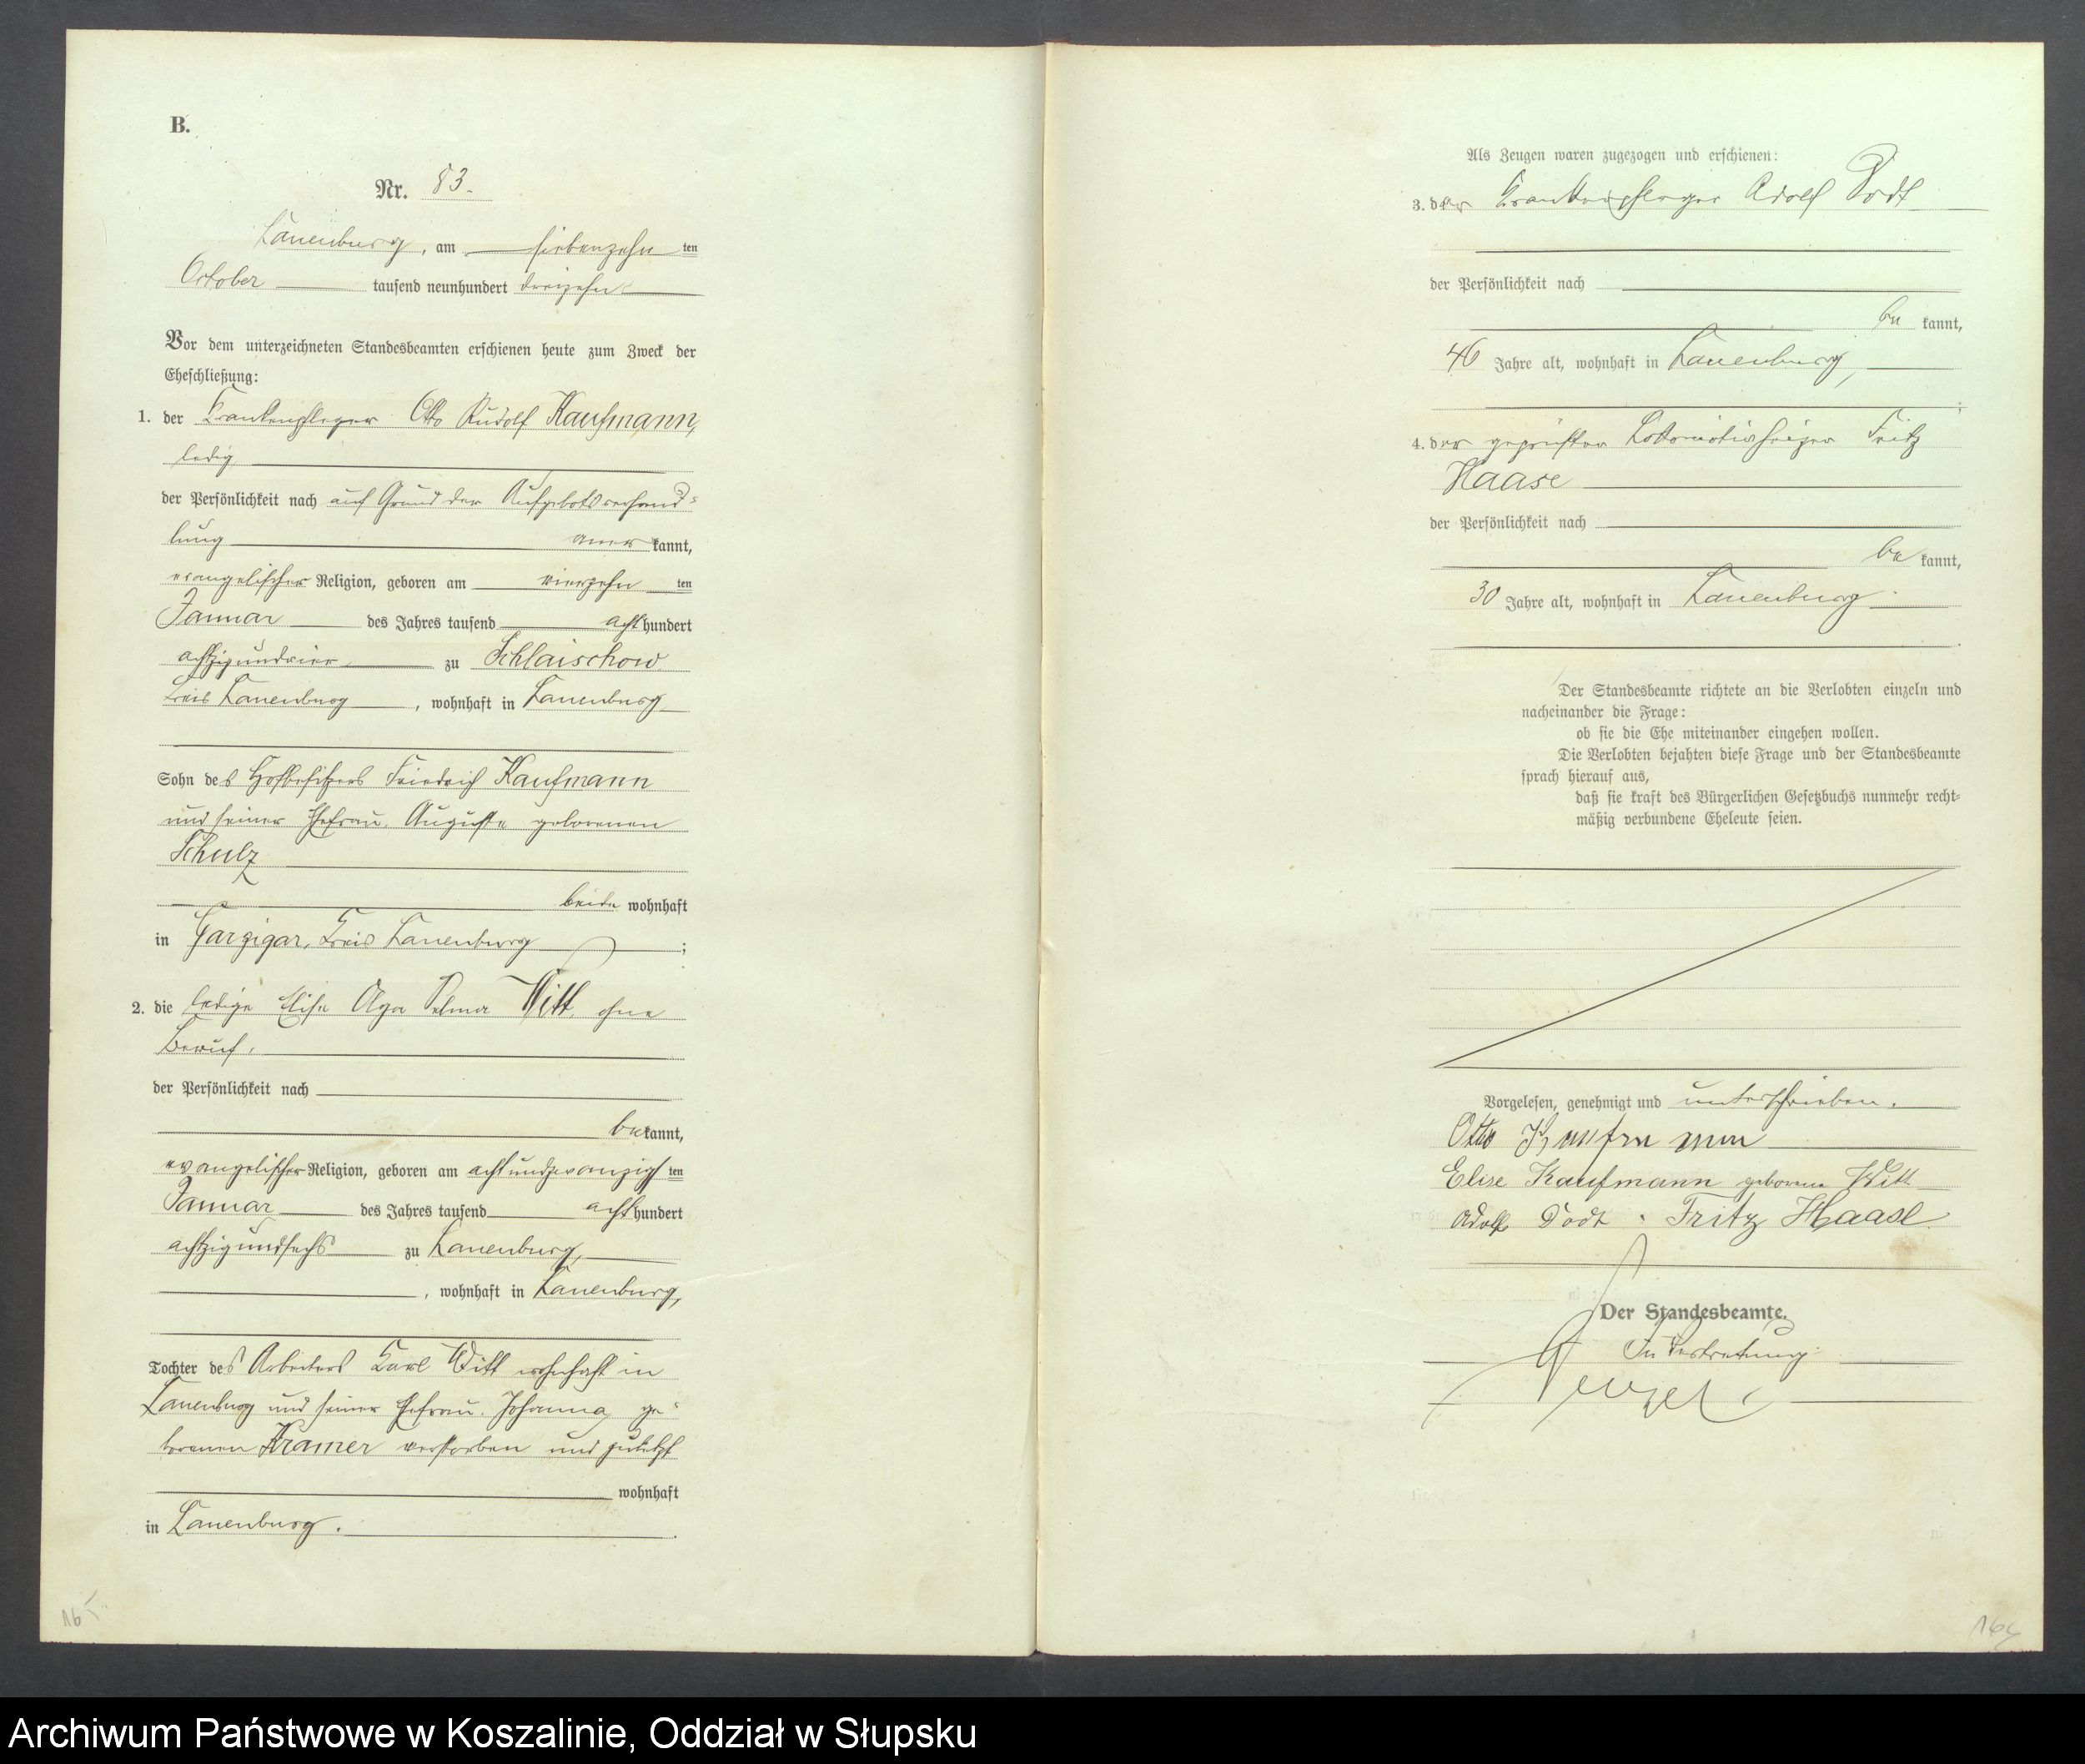 B.
Nr. 83.
Lauenburg, am siebenzehn ten
October tausend neunhundert dreizehn
Vor dem unterzeichneten Standesbeamten erschienen heute zum Zweck der
Eheschließung:
1. der Krankenpfleger Otto Rudolf Kaufmann,
ledig
der Persönlichkeit nach auf Grund der Aufgebotsverhand=
lung aner kannt,
evangelischer Religion, geboren am vierzehn ten
Januar des Jahres tausend acht hundert
achtzigundvier zu Schlaischow
Kreis Lauenburg, wohnhaft in Lauenburg
Sohn des Hofbesitzers Friedrich Kaufmann
und seiner Ehefrau Auguste geborenen
Schulz
beide wohnhaft
in Garzigar, Kreis Lauenburg;
2. die ledige Elise Olga Selma Witt, ohne
Beruf,
der Persönlichkeit nach
be kannt,
evangelischer Religion, geboren am achtundzwanzigs ten
Januar des Jahres tausend acht hundert
achtzigundsechs zu Lauenburg,
, wohnhaft in Lauenburg,
Tochter des Arbeiters Karl Witt wohnhaft in
Lauenburg und seiner Ehefrau Johanna, ge=
borenen Kramer verstorben und zuletzt
wohnhaft
in Lauenburg.
16
Als Zeugen waren zugezogen und erschienen:
3. der Krankenpfleger Adolf Dodt
der Persönlichkeit nach
be kannt,
46 Jahre alt, wohnhaft in Lauenburg,
;
4. der geprüfter Lokomotivheizer Fritz
Haase
der Persönlichkeit nach
be kannt,
30 Jahre alt, wohnhaft in Lauenburg.
Der Standesbeamte richtete an die Verlobten einzeln und
nacheinander die Frage:
ob sie die Ehe miteinander eingehen wollen.
Die Verlobten bejahten diese Frage und der Standesbeamte
sprach hierauf aus,
daß sie kraft des Bürgerlichen Gesetzbuchs nunmehr recht=
mäßig verbundene Eheleute seien.
Vorgelesen, genehmigt und unterschrieben.
Otto Kaufmann
Elise Kaufmann geborene Witt
Adolf Dodt. Fritz Haase
Der Standesbeamte.
In Vertretung:
Archiwum Państwowe w Koszalinie, Oddział w Słupsku